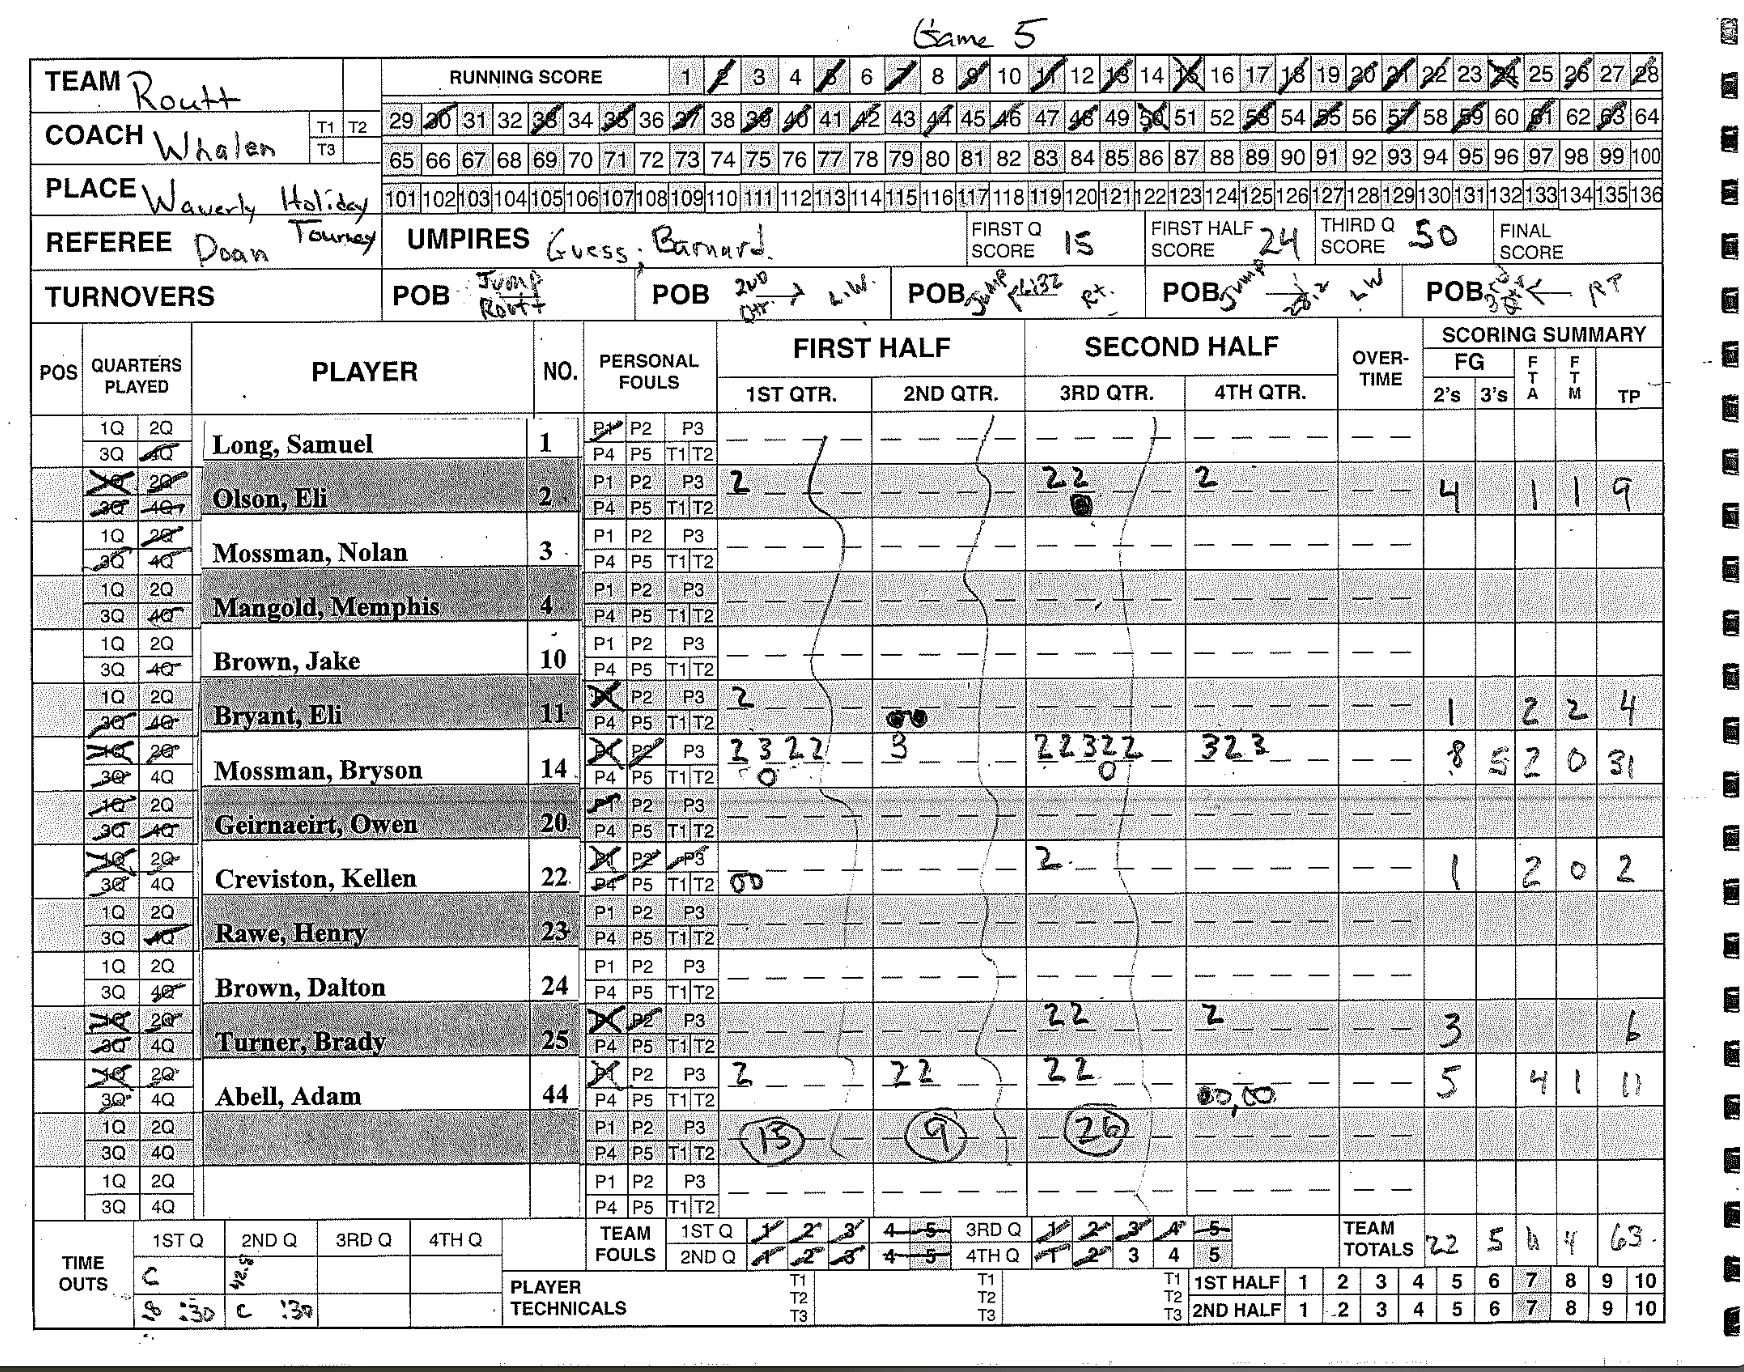 Game 5
TEAM Routt RUNNING SCORE 1 2 3 4 5 6 7 8 9 10 11 12 13 14 15 16 17 18 19 20 21 22 23 24 25 26 27 28
COACH Whalen T1 T2 T3 29 30 31 32 33 34 35 36 37 38 39 40 41 42 43 44 45 46 47 48 49 50 51 52 53 54 55 56 57 58 59 60 61 62 63 64
65 66 67 68 69 70 71 72 73 74 75 76 77 78 79 80 81 82 83 84 85 86 87 88 89 90 91 92 93 94 95 96 97 98 99 100
PLACE Waverly Holiday Tourney 101 102 103 104 105 106 107 108 109 110 111 112 113 114 115 116 117 118 119 120 121 122 123 124 125 126 127 128 129 130 131 132 133 134 135 136
REFEREE Doan UMPIRES Guess, Barnard. FIRST Q SCORE 15 FIRST HALF SCORE 24 THIRD Q SCORE 50 FINAL SCORE
TURNOVERS POB Jump Routt POB 2ND Qtr. → L.W. POB Jump Rt. POB Jump → LW POB ← RT
POS QUARTERS PLAYED PLAYER NO. PERSONAL FOULS FIRST HALF SECOND HALF OVER-TIME SCORING SUMMARY
1ST QTR. 2ND QTR. 3RD QTR. 4TH QTR. FG 2's 3's FTA FTM TP
1Q 2Q P1 P2 P3
3Q 4Q Long, Samuel 1 P4 P5 T1 T2
1Q 2Q P1 P2 P3 2 2 2 2
3Q 4Q Olson, Eli 2 P4 P5 T1 T2 4 1 1 9
1Q 2Q P1 P2 P3
3Q 4Q Mossman, Nolan 3 P4 P5 T1 T2
1Q 2Q P1 P2 P3
3Q 4Q Mangold, Memphis 4 P4 P5 T1 T2
1Q 2Q P1 P2 P3
3Q 4Q Brown, Jake 10 P4 P5 T1 T2
1Q 2Q P1 P2 P3 2
3Q 4Q Bryant, Eli 11 P4 P5 T1 T2 1 2 2 4
1Q 2Q P1 P2 P3 2 3 2 2 3 2 2 3 2 2 3 2 3
3Q 4Q Mossman, Bryson 14 P4 P5 T1 T2 0 0 8 5 2 0 31
1Q 2Q P1 P2 P3
3Q 4Q Geirnaeirt, Owen 20 P4 P5 T1 T2
1Q 2Q P1 P2 P3 2
3Q 4Q Creviston, Kellen 22 P4 P5 T1 T2 00 1 2 0 2
1Q 2Q P1 P2 P3
3Q 4Q Rawe, Henry 23 P4 P5 T1 T2
1Q 2Q P1 P2 P3
3Q 4Q Brown, Dalton 24 P4 P5 T1 T2
1Q 2Q P1 P2 P3 2 2 2
3Q 4Q Turner, Brady 25 P4 P5 T1 T2 3 6
1Q 2Q P1 P2 P3 2 2 2 2 2
3Q 4Q Abell, Adam 44 P4 P5 T1 T2 00,00 5 4 1 11
1Q 2Q P1 P2 P3 15 9 26
3Q 4Q P4 P5 T1 T2
1Q 2Q P1 P2 P3
3Q 4Q P4 P5 T1 T2
TIME OUTS 1ST Q 2ND Q 3RD Q 4TH Q TEAM FOULS 1ST Q 1 2 3 4 5 3RD Q 1 2 3 4 5 TEAM TOTALS 22 5 4 63
2ND Q 1 2 3 4 5 4TH Q 1 2 3 4 5
C PLAYER TECHNICALS T1 T2 T3 T1 T2 T3 T1 T2 T3 1ST HALF 1 2 3 4 5 6 7 8 9 10
:30 C :30 2ND HALF 1 2 3 4 5 6 7 8 9 10